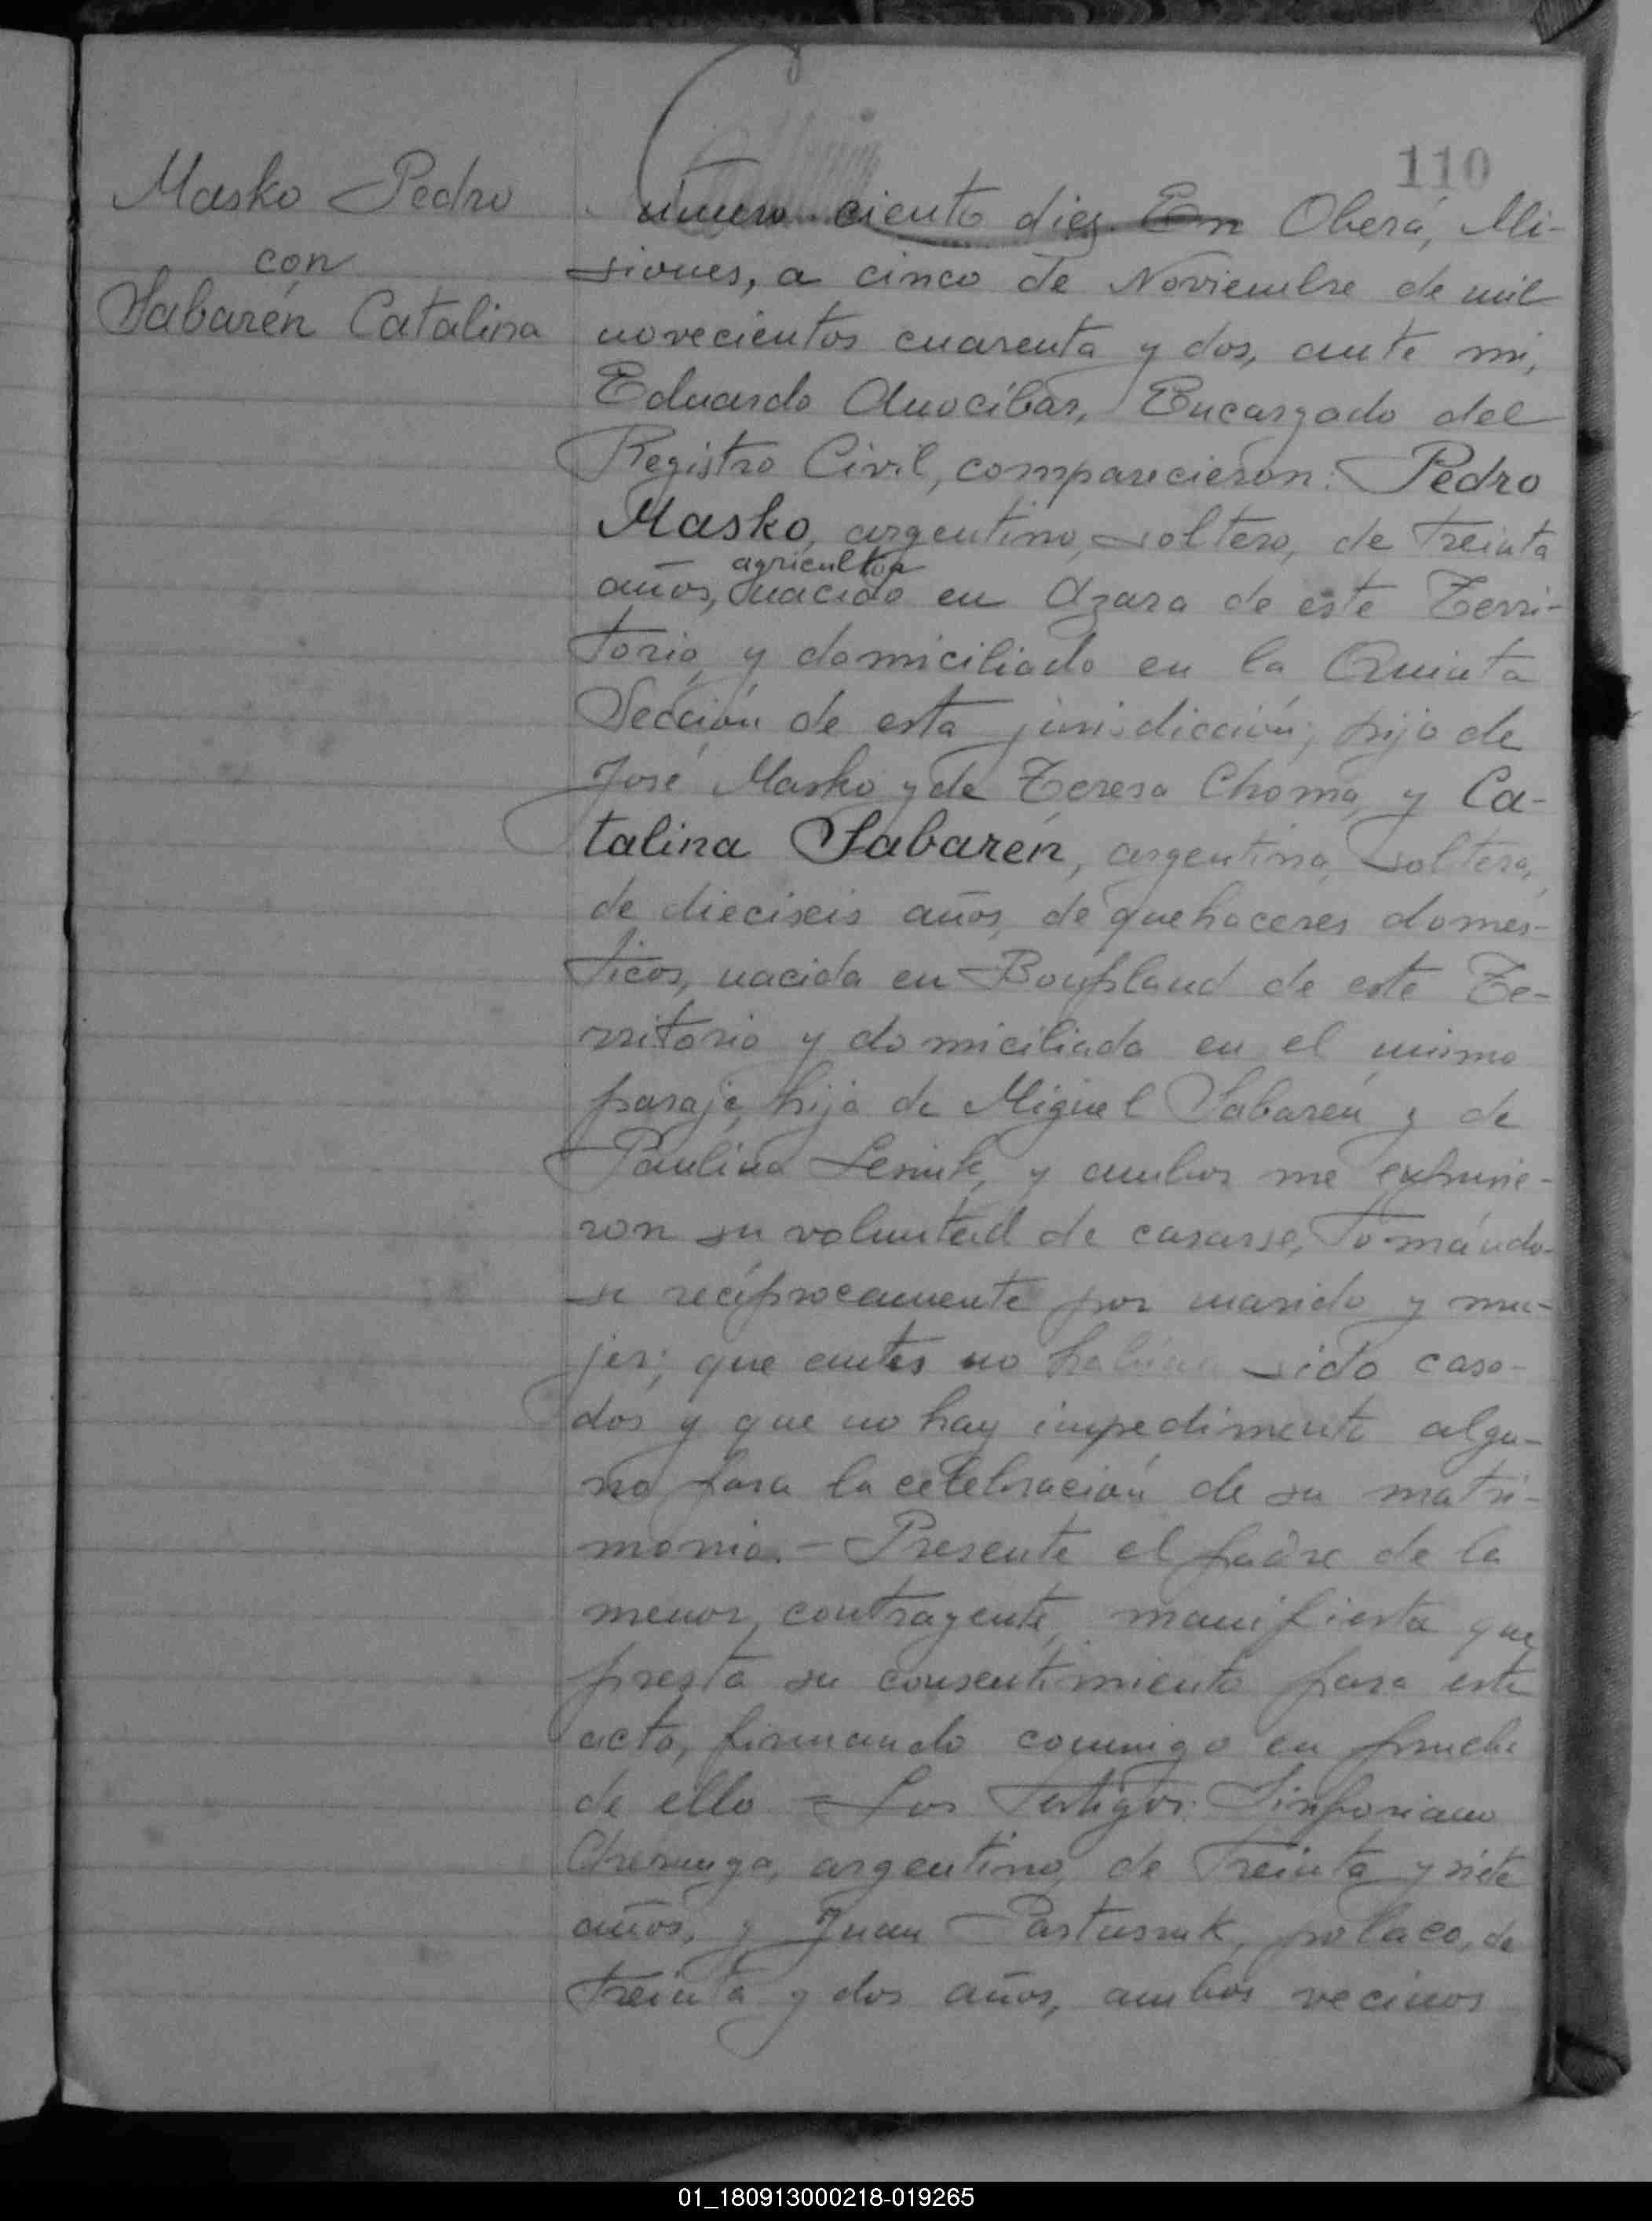 110
Masko Pedro
con
Sabarén Catalina
número ciento diez. En Oberá, Mi-
siones, a cinco de Noviembre de mil
novecientos cuarenta y dos, ante mi,
Eduardo Anocíbar, Encargado del
Registro Civil, comparecieron: Pedro
Masko, argentino, soltero, de treinta
agricultor
años, nacido en Azara de este Terri-
torio, y domiciliado en la Quinta
Sección de esta jurisdicción; hijo de
José Masko y de Teresa Choma, y Ca-
talina Sabarén, argentina, soltera,
de dieciseis años, de quehaceres domés-
ticos, nacida en Bonpland de este Te-
rritorio y domiciliada en el mismo
paraje, hija de Miguel Sabarén y de
Paulina Leniuk, y ambos me expusie-
ron su voluntad de casarse, tomándo-
se recíprocamente por marido y mu-
jer; que antes no habían sido casa-
dos y que no hay impedimento algu-
no para la celebración de su matri-
monio.- Presente el padre de la
menor contrayente, manifiesta que
presta su consentimiento para este
acto, firmando conmigo en prueba
de ello = Los testigos: Sinforiano
argentino, de treinta y siete
años, y Juan Pastusuk, polaco, de
treinta y dos años, ambos vecinos
01_180913000218-019265